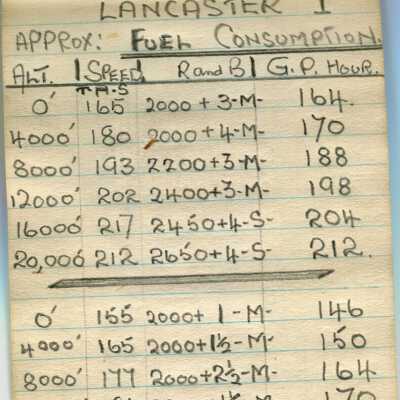 LANCASTER I
APPROX: FUEL CONSUMPTION.
ALT. SPEED R and B G.P. HOUR.
T.A.S
0' 165 2000 + 3-M- 164.
4000' 180 2000 + 4-M- 170
8000' 193 2200 + 3-M- 188
12000' 202 2400+3-M- 198
16000' 217 2450+4-S- 204
20,000 212 2650+4-S- 212.
0' 155 2000+ 1-M- 146
4000' 165 2000+1½-M- 150
8000' 177 2000+2½-M- 164
170